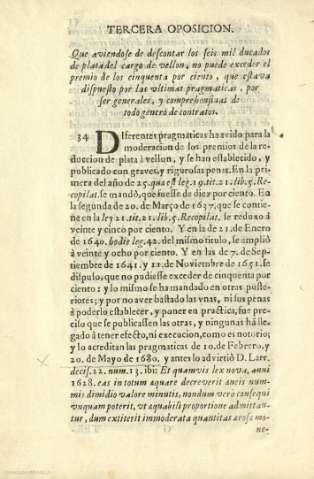 TERCERA OPOSICION.
Que aviendose de descontar los seis mil ducados
de plata del cargo de vellon, no puede exceder el
premio de los cinquenta por ciento, que estava
dispuesto por las ultimas pragmaticas, por
ser generales, y comprehensivas de
todo genero de contratos.
34 DIferentes pragmaticas ha avido para la
moderacion de los premios de la re-
duccion de plata à vellon, y se han establecido, y
publicado con graves, y rigurosas penas. En la pri-
mera del año de 25. quæ est leg. 19. tit. 21. lib. 5. Re-
copilat. se mandò, que fuesse de diez por ciento. En
la segunda de 20. de Março de 1637. que se contie-
ne en la ley 21. tit. 21. lib. 5. Recopilat. se reduxo à
veinte y cinco por ciento. Y en la de 21. de Enero
de 1640. hodie leg. 42. del mismo titulo, se ampliò
à veinte y ocho por ciento. Y en las de 7. de Sep-
tiembre de 1641. y 12. de Noviembre de 1651. se
dispuso, que no pudiesse exceder de cinquenta por
ciento: y lo mismo se ha mandado en otras poste-
riores; y por no aver bastado las unas, ni sus penas
à poderlo establecer, y poner en practica, fue pre-
ciso que se publicassen las otras, y ningunas hà lle-
gado à tener efecto, ni execucion, como es notorio;
y lo acreditan las pragmaticas de 10. de Febrero, y
20. de Mayo de 1680. y antes lo advirtiò D. Larr.
decis. 22. num. 13. ibi: Et quamvis lex nova, anni
1628. eas in totum æquare decreverit æneis num-
mis dimidio valore minutis, nondum verò consequi
vnquam poterit, vt æquabili proportione admittan-
tur, dum extiterit immoderata quantitas ærosæ mo-
ne-